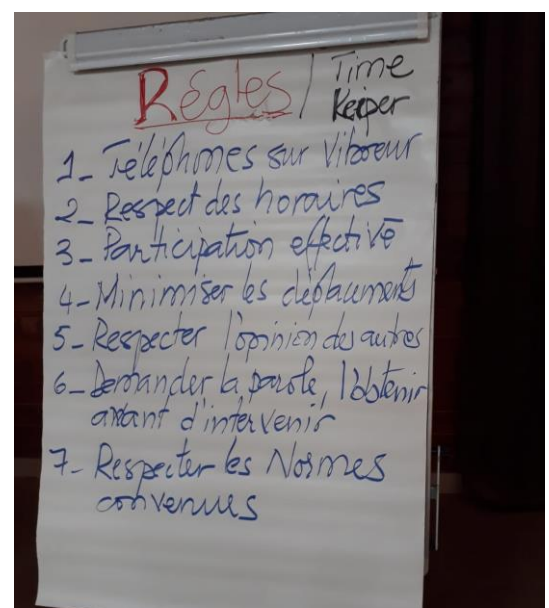 Régles / Time
Keeper
1_ Téléphones sur Vibreur
2_ Respect des horaires
3_ Participation effective
4_ Minimiser les déplacements
5_ Respecter l'opinion des autres
6_ Demander la parole, l'obtenir
avant d'intervenir
7_ Respecter les Normes
convenues